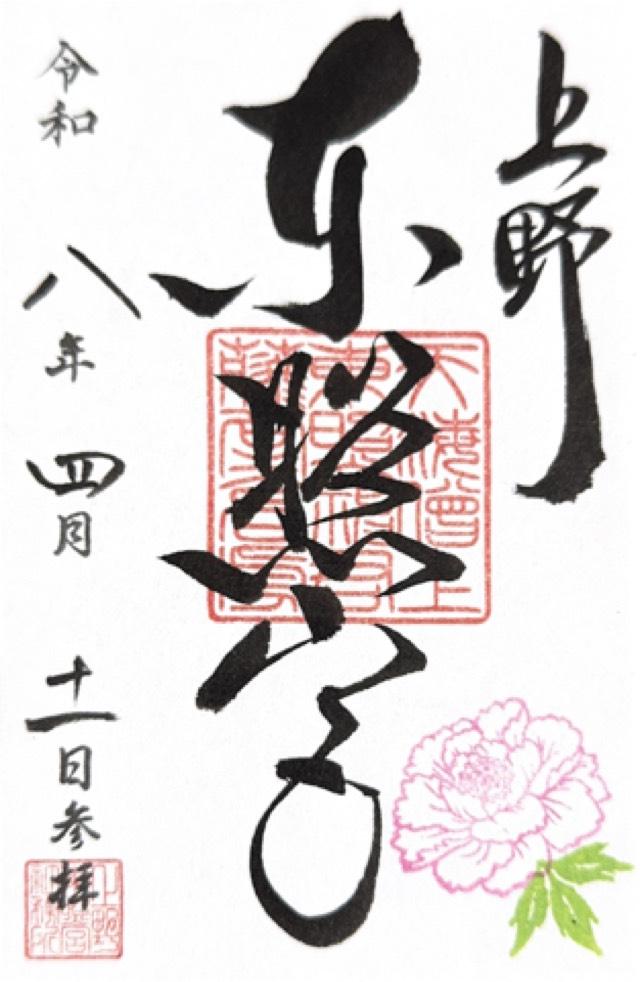 上野
東照宮
令和八年四月十一日参拝